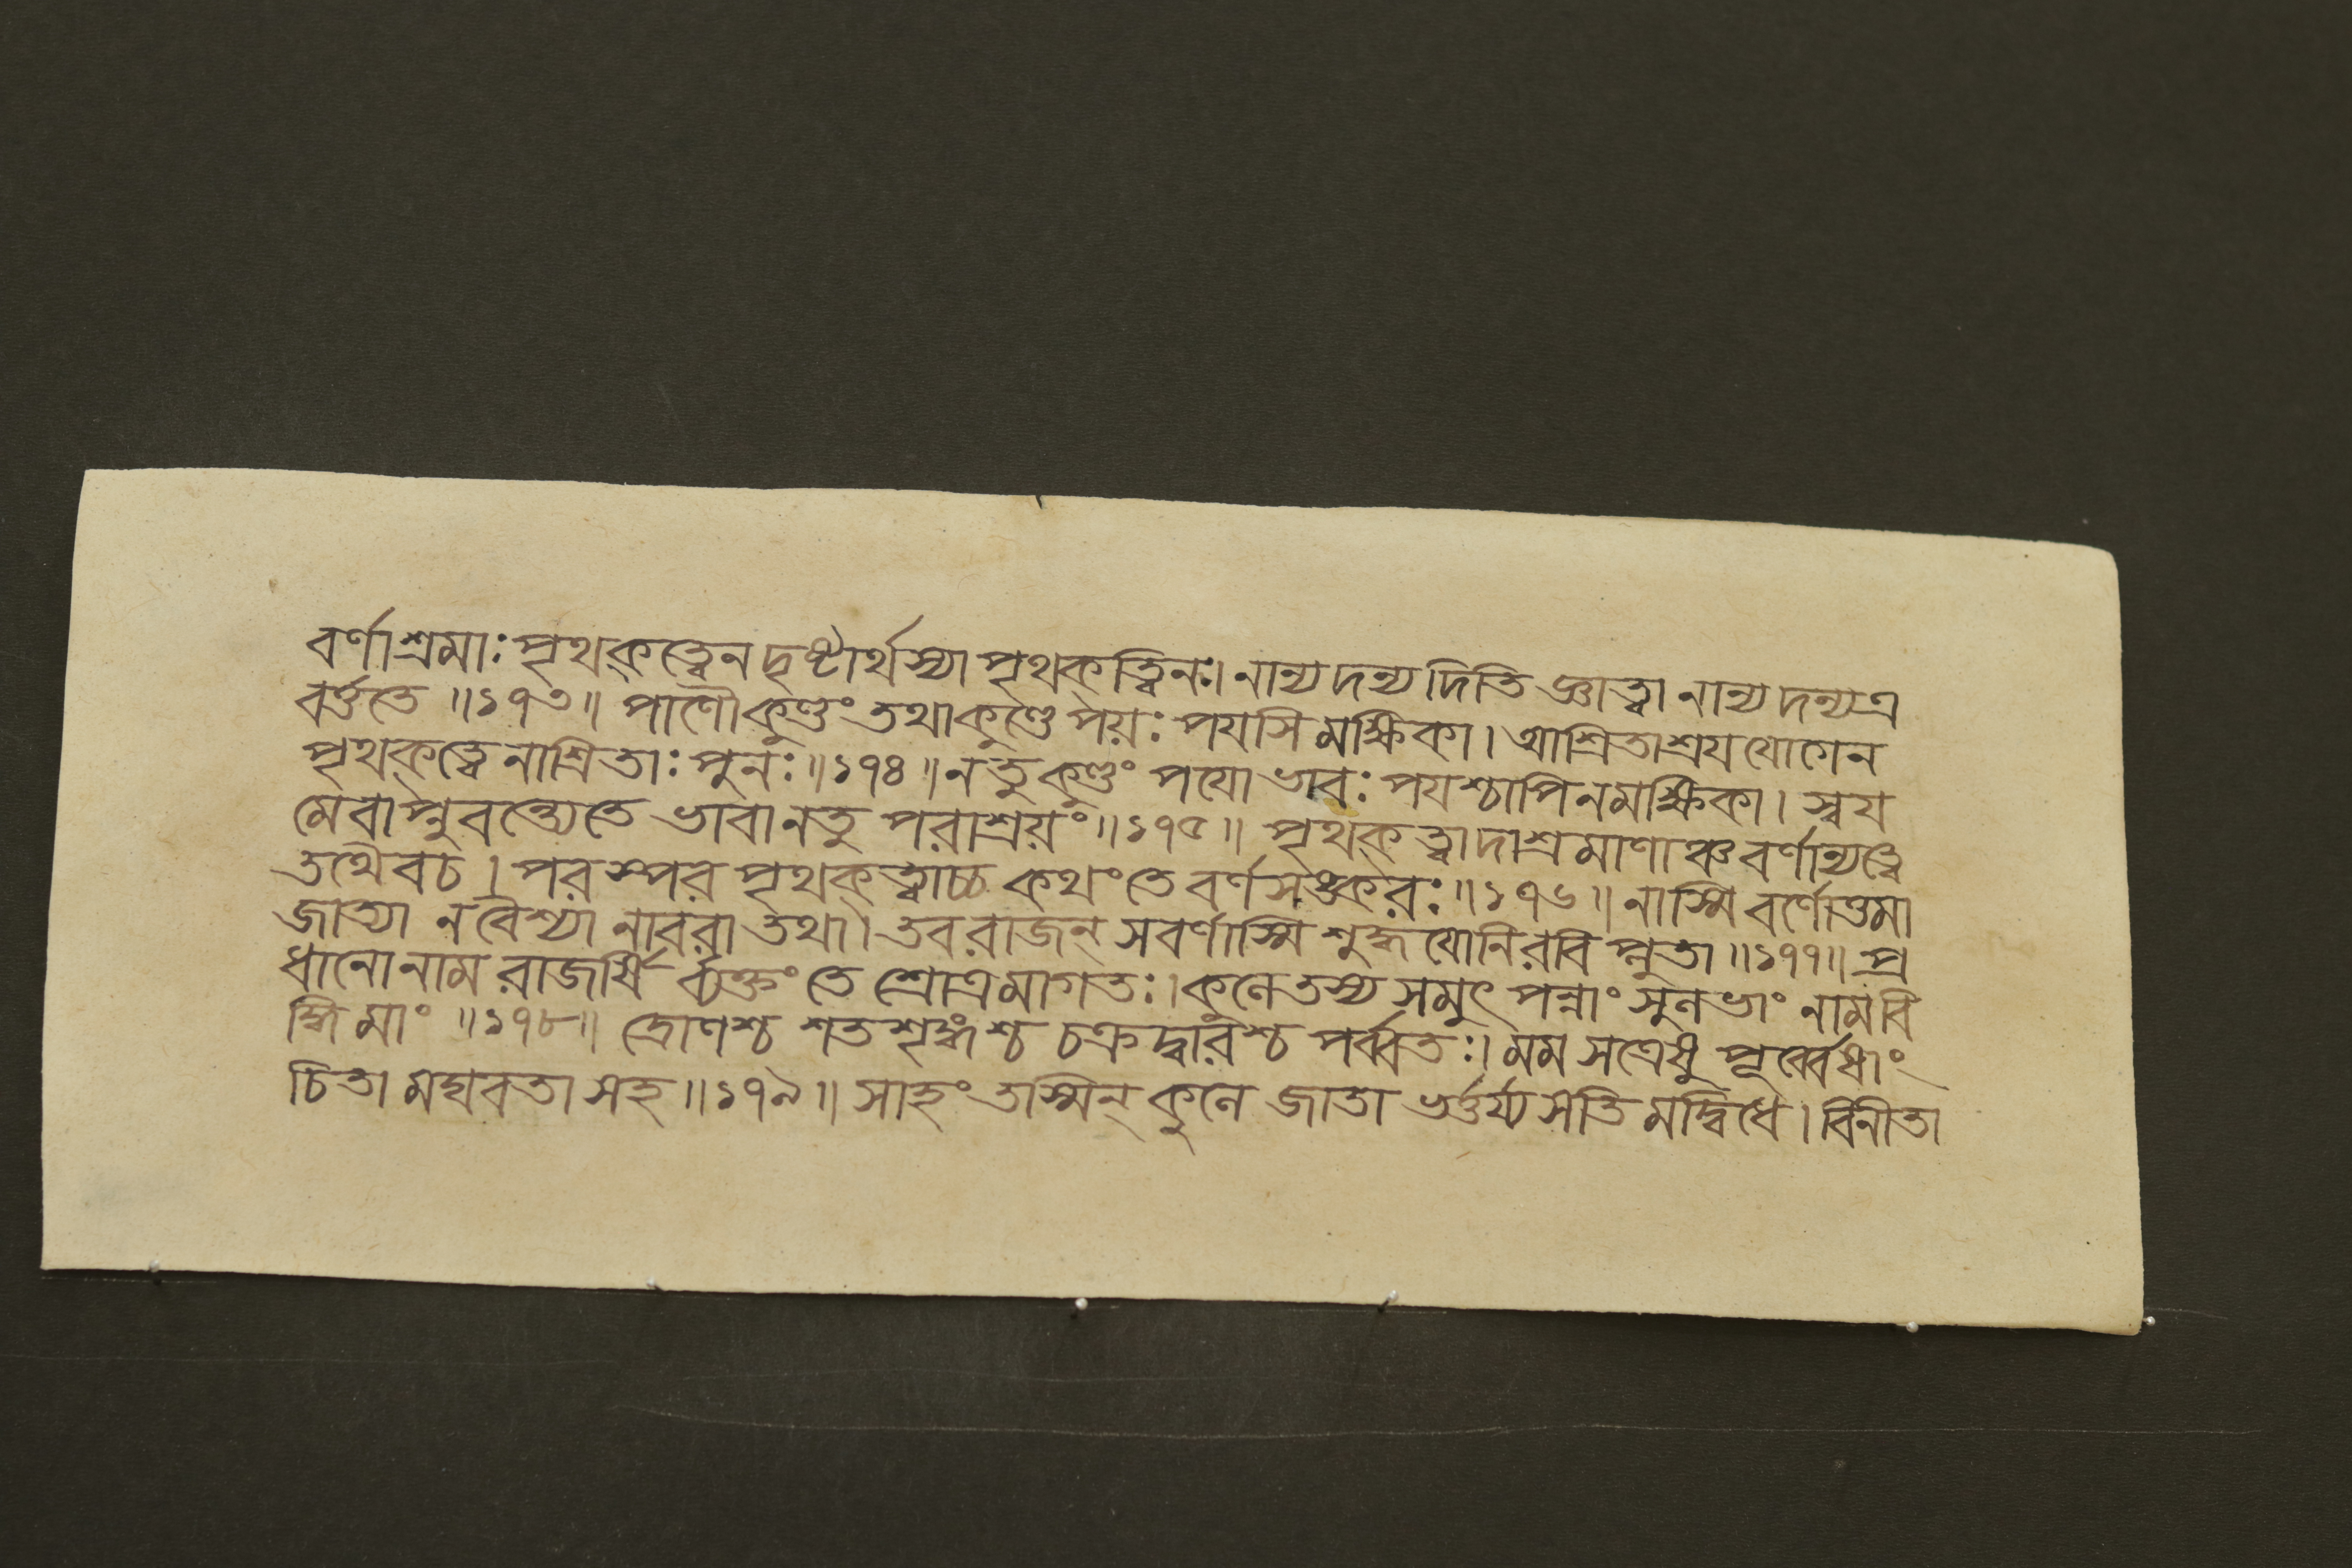 বর্ণাশ্রমাঃ পৃথক্ত্বেন দৃষ্টার্থস্যা পৃথক্ত্বিনঃ। নান্যদন্যদিতি জ্ঞাত্বা নান্যদন্যত্র
বর্ত্ততে ॥১৭৩॥ পাণৌ কুণ্ডং তথা কুণ্ডে পয়ঃ পযসি মক্ষিকা। আশ্রিতাশ্রয যোগেন
পৃথক্ত্বেনাশ্রিতাঃ পুনঃ॥১৭৪॥ নতু কুণ্ডং পযো ভাবঃ পযশ্চাপি নমক্ষিকা। স্বয
মেবাপ্নুবন্ত্যেতে ভাবা নতু পরাশ্রয়ং॥১৭৫॥ পৃথক্ত্বাদাশ্রমাণাঞ্চ বর্ণান্যত্বে
তথৈবচ। পরস্পর পৃথক্ত্বাচ্চ কথং তে বর্ণসঙ্করঃ॥১৭৬॥ নাস্মি বর্ণোত্তমা
জাত্যা ন বৈশ্যা নাবরা তথা। তব রাজন্ সবর্ণাস্মি শুদ্ধযোনিরবিপ্লুতা ॥১৭৭॥ প্র
ধানো নাম রাজর্ষি র্ব্যক্তং তে শ্রোত্রমাগতঃ। কুলে তস্য সমুৎপন্নাং সুলভাং নাম বি
দ্ধি মাং ॥১৭৮॥ দ্রোণশ্চ শতশৃঙ্গশ্চ চক্রদ্বারশ্চ পর্ব্বতঃ। মম সত্রেষু পূর্ব্বেষাং
চিতা মঘবতা সহ॥১৭৯॥ সাহং তস্মিন্ কুলে জাতা ভর্ত্তর্য্যসতি মদ্বিধে। বিনীতা